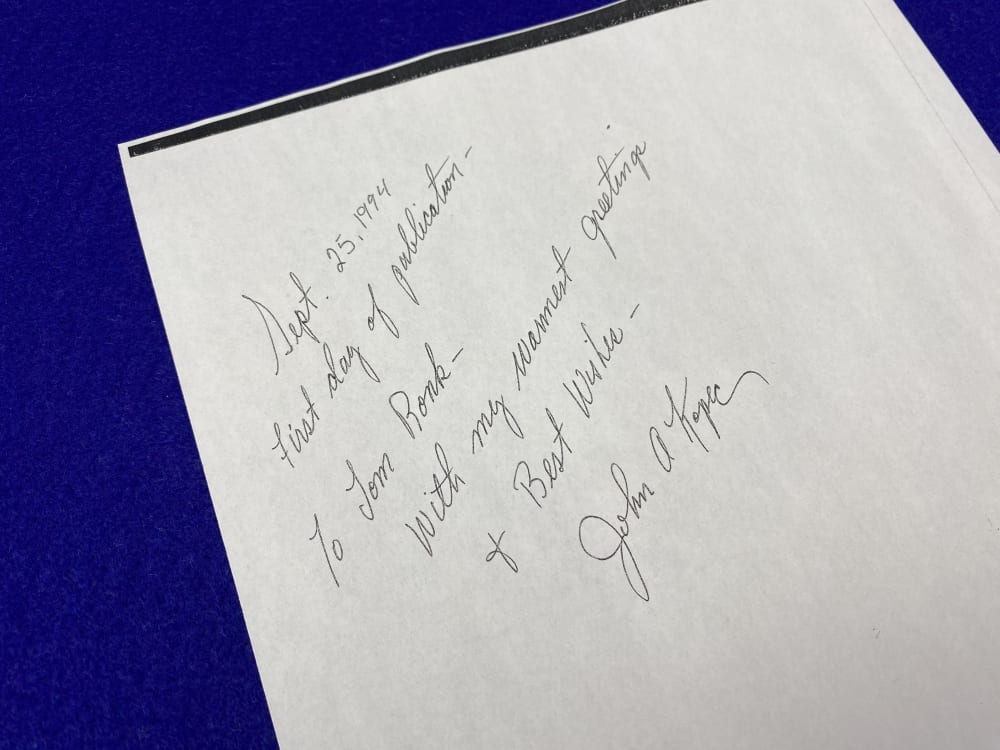 Sept. 25, 1994
First day of publication -
To Tom Bonk -
With my warmest greetings
& Best Wishes -
John A Kopec